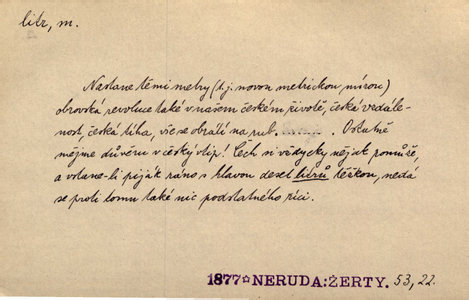 litr, m.
Nastane těmi metry (t.j. novou metrickou mírou)
obrovská revoluce také v našem českém životě, česká vzdále-
nost, česká tíha, vše se obrátí na rub. Ostatně
mějme důvěru v český vtip! Čech si vždycky nějak pomůže,
a vstane-li piják ráno s hlavou deset litrů těžkou, nedá
se proti tomu také nic podstatného říci.
1877☆NERUDA:ŽERTY. 53, 22.